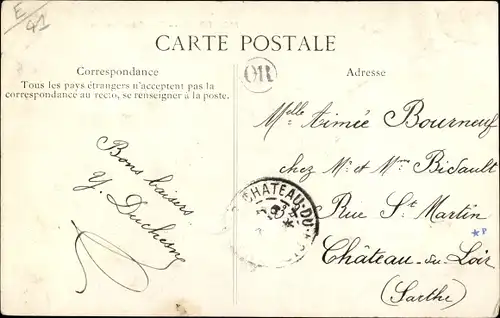 E/41
CARTE POSTALE
Correspondance
Tous les pays étrangers n'acceptent pas la
correspondance au recto, se renseigner à la poste.
Bons baisers
Y. Duchesne
OR
Adresse
Melle Aimée Bourneuf
chez Mr et Mme Bidault
Rue St Martin
Château-du-Loir
(Sarthe)
CHATEAU-DU-
*P